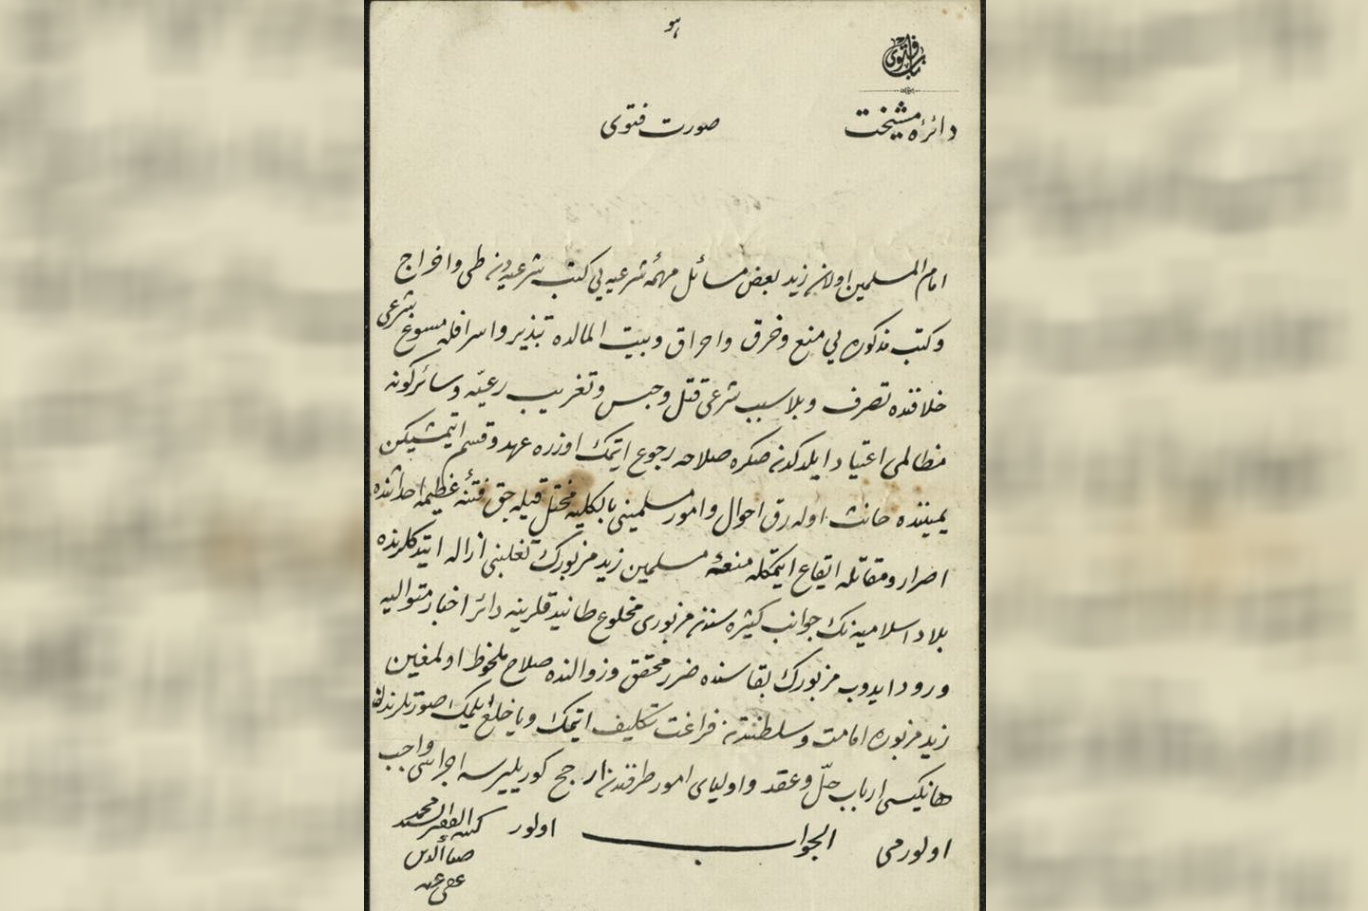 هو
باب فتوی
دائرۀ مشیخت
صورت فتوی
امام المسلمین اولان زید بعض مسائل مهمۀ شرعیه یی کتب شرعیه دن طی واخراج
وکتب مذکوره یی منع وخرق واحراق وبیت المالده تبذیر واسرافله مسوغ شرعی
خلافنده تصرف وبلا سبب شرعی قتل وحبس وتغریب رعیه وسائر کونه
مظالمی اعتیاد ایلدکدن صکره صلاحه رجوع ایتمک اوزره عهد وقسم ایتمشیکن
یمیننده حانث اوله رق احوال وامور مسلمینی بالکلیه مختل قیله جق فتنۀ عظیمه احداثنده
اصرار ومقاتله ایقاع ایتمکله منعۀ مسلمین زید مزبورک تغلبنی ازاله ایتدکلرنده
بلاد اسلامیه نک جوانب کثیره سندن مزبوری مخلوع طانیدقلرینه دائر اخبار متوالیه
ورود ایدوب مزبورک بقاسنده ضرر محقق وزوالنده صلاح ملحوظ اولمغین
زید مزبوره امامت وسلطنتدن فراغت تکلیف ایتمک ویا خلع ایلمک صورتلرندن
هانکیسی ارباب حلّ وعقد واولیای امور طرفندن ارجح کوریلیرسه اجراسی واجب
اولورمی الجواب اولور
کتبه الفقیر السید محمد
ضیاء الدین
عفی عنه